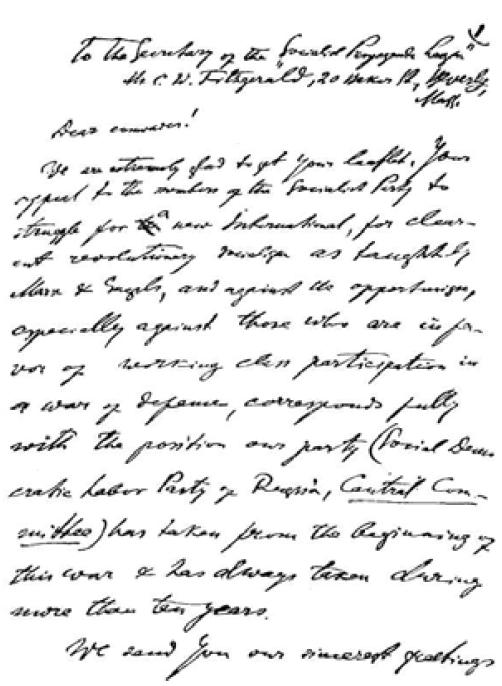 To the Secretary of the "Socialist Propaganda League"
Mr C. W. Fitzgerald, 20 Baker Pl, Beverly,
Mass.
Dear comrades!
We are extremely glad to get your leaflet. Your
appeal to the members of the Socialist Party to
struggle for a new International, for clear-
cut revolutionary socialism as taught by
Marx & Engels, and against the opportunism,
especially against those who are in fa-
vor of working class participation in
a war of defence, corresponds fully
with the position our party (Social Demo
cratic Labor Party of Russia, Central Com-
mittee) has taken from the beginning of
this war & has always taken during
more than ten years.
We send you our sincerest greetings